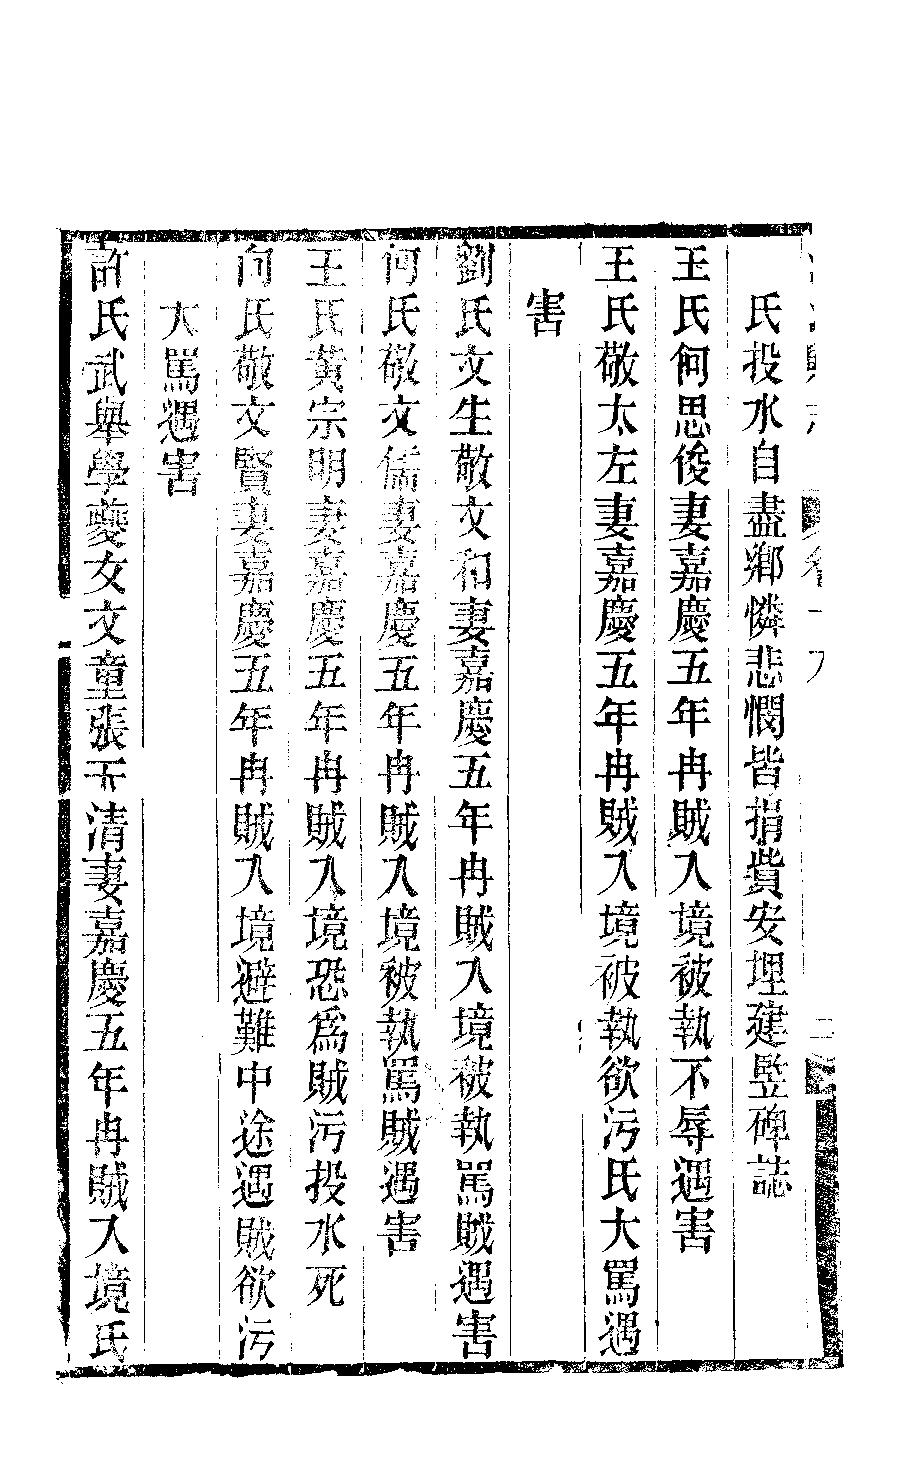 氏投水自盡鄉憐悲憫皆捐貲安埋建竪碑誌
王氏何思俊妻嘉慶五年冉賊入境被執不辱遇害
王氏敬太左妻嘉慶五年冉賊入境被執欲污氏大罵遇
害
劉氏文生敬文和妻嘉慶五年冉賊入境被執罵賊遇害
何氏敬文儒妻嘉慶五年冉賊入境被執罵賊遇害
王氏黃宗明妻嘉慶五年冉賊入境恐爲賊污投水死
向氏敬文賢妻嘉慶五年冉賊入境避難中途遇賊欲污
大罵遇害
許氏武舉學夔女文童張天清妻嘉慶五年冉賊入境氏